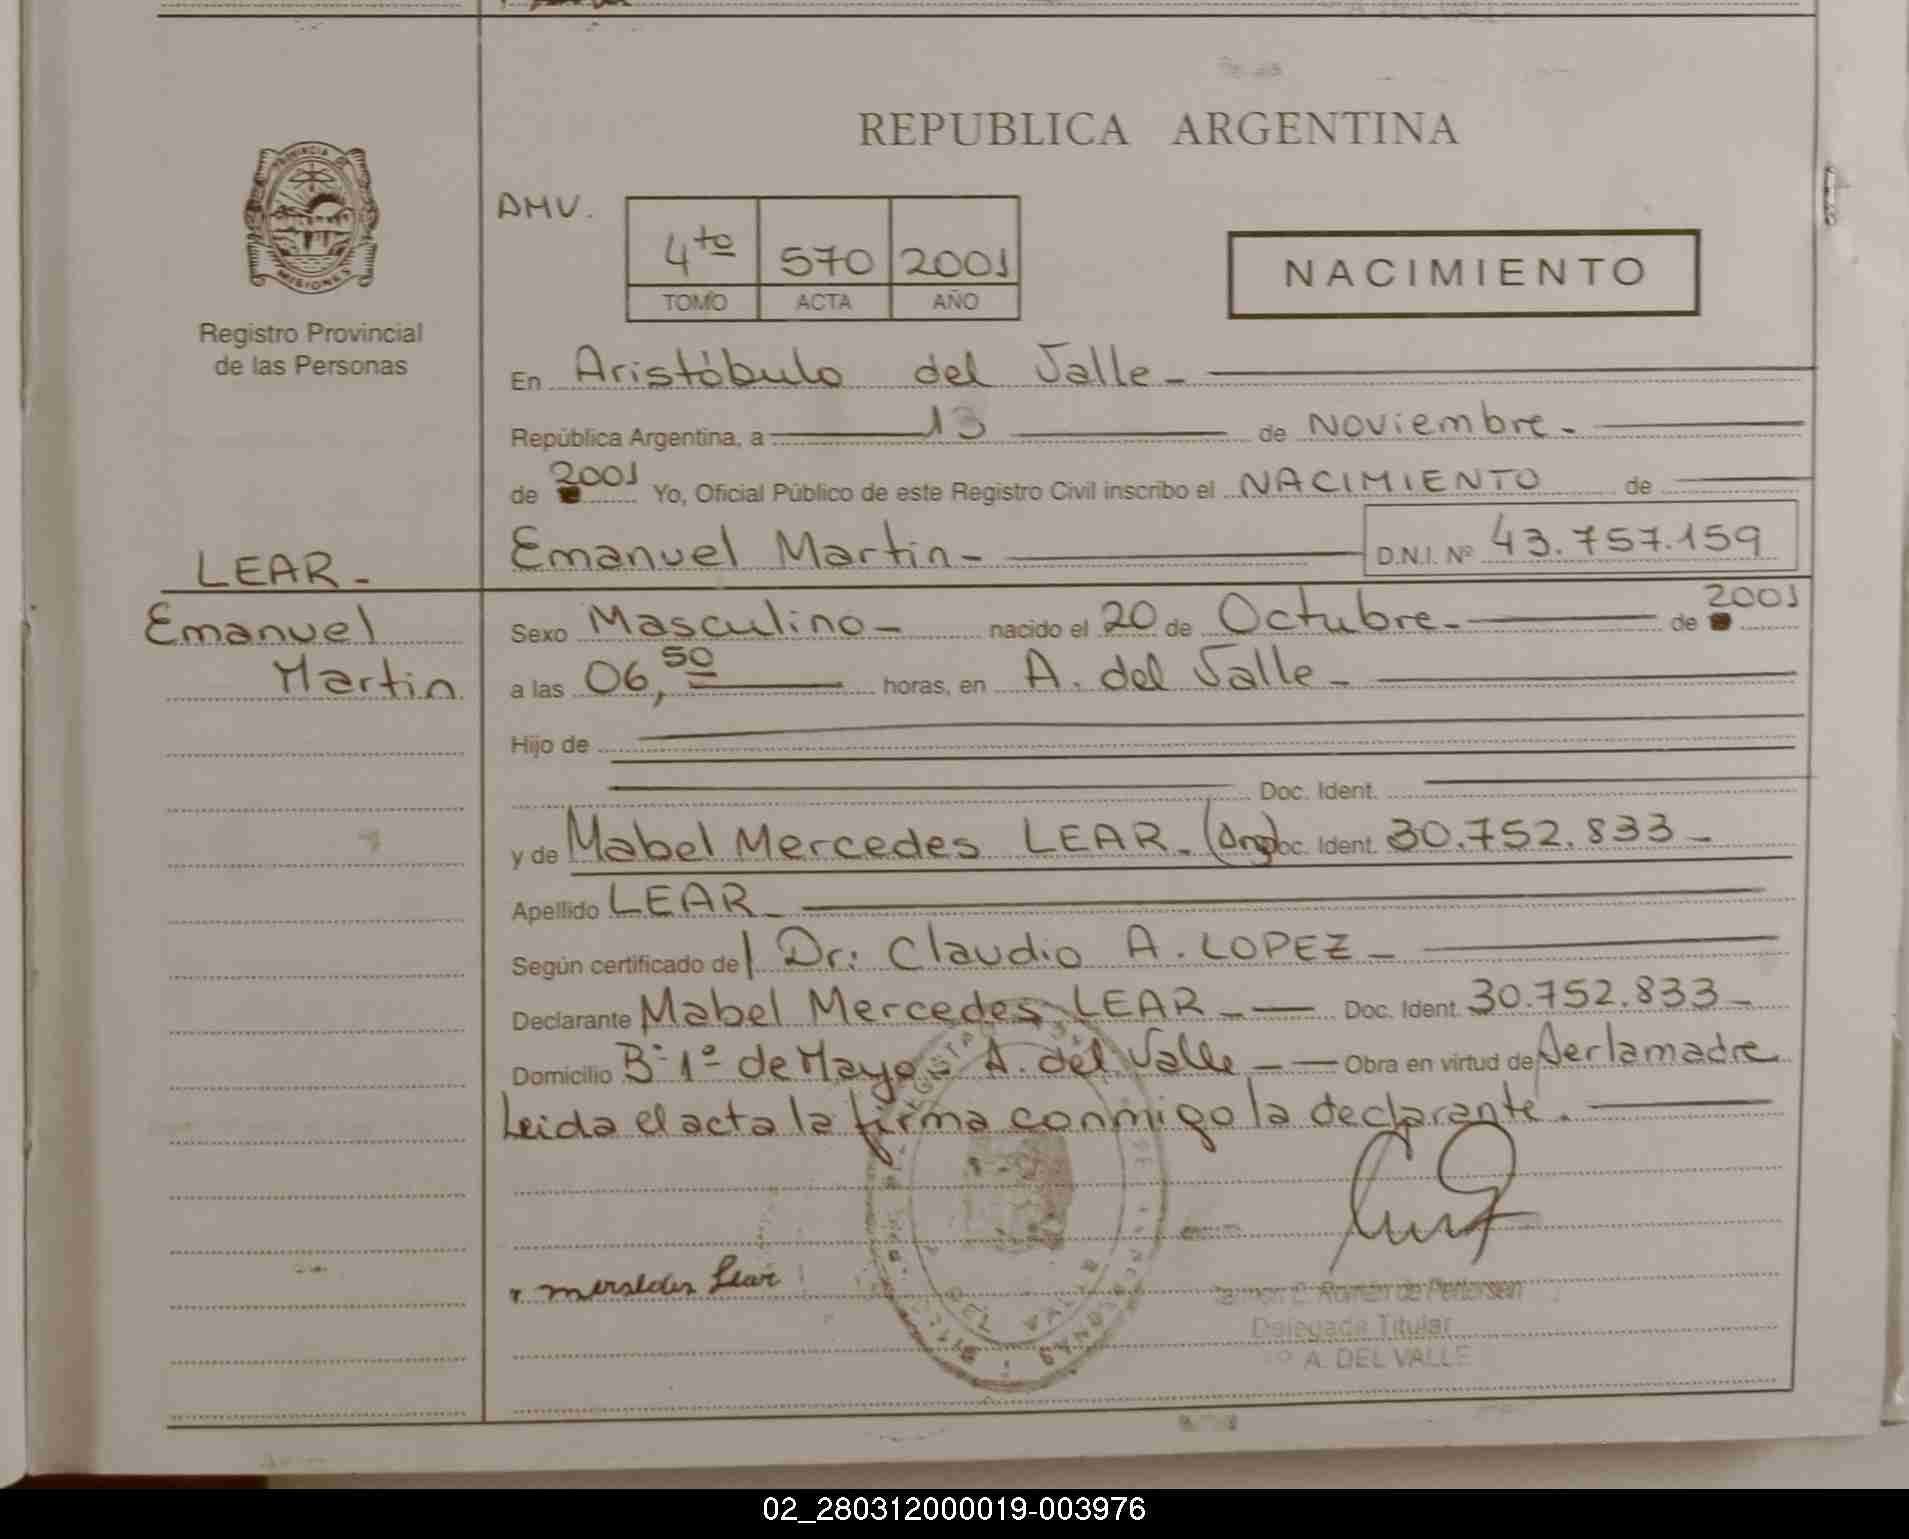 REPUBLICA ARGENTINA
PROVINCIA DE
MISIONES
Registro Provincial
de las Personas
AMV.
4to 570 2001
TOMO ACTA AÑO
NACIMIENTO
En Aristóbulo del Valle -
República Argentina, a 13 de Noviembre -
de 2001 Yo, Oficial Público de este Registro Civil inscribo el NACIMIENTO de
Emanuel Martin - D.N.I. Nº 43.757.159
LEAR -
Emanuel
Martin
Sexo Masculino - nacido el 20 de Octubre - de 2001
a las 06,50 horas, en A. del Valle -
Hijo de
Doc. Ident.
y de Mabel Mercedes LEAR - (Arg) Doc. Ident. 30.752.833 -
Apellido LEAR -
Según certificado de Dr: Claudio A. LOPEZ -
Declarante Mabel Mercedes LEAR - Doc. Ident. 30.752.833 -
Domicilio Bº 1º de Mayo A. del Valle - Obra en virtud de Ser la madre
Leida el acta la firma conmigo la declarante.
Lear
Román de Pedersen
Delegada Titular
A. DEL VALLE
02_280312000019-003976